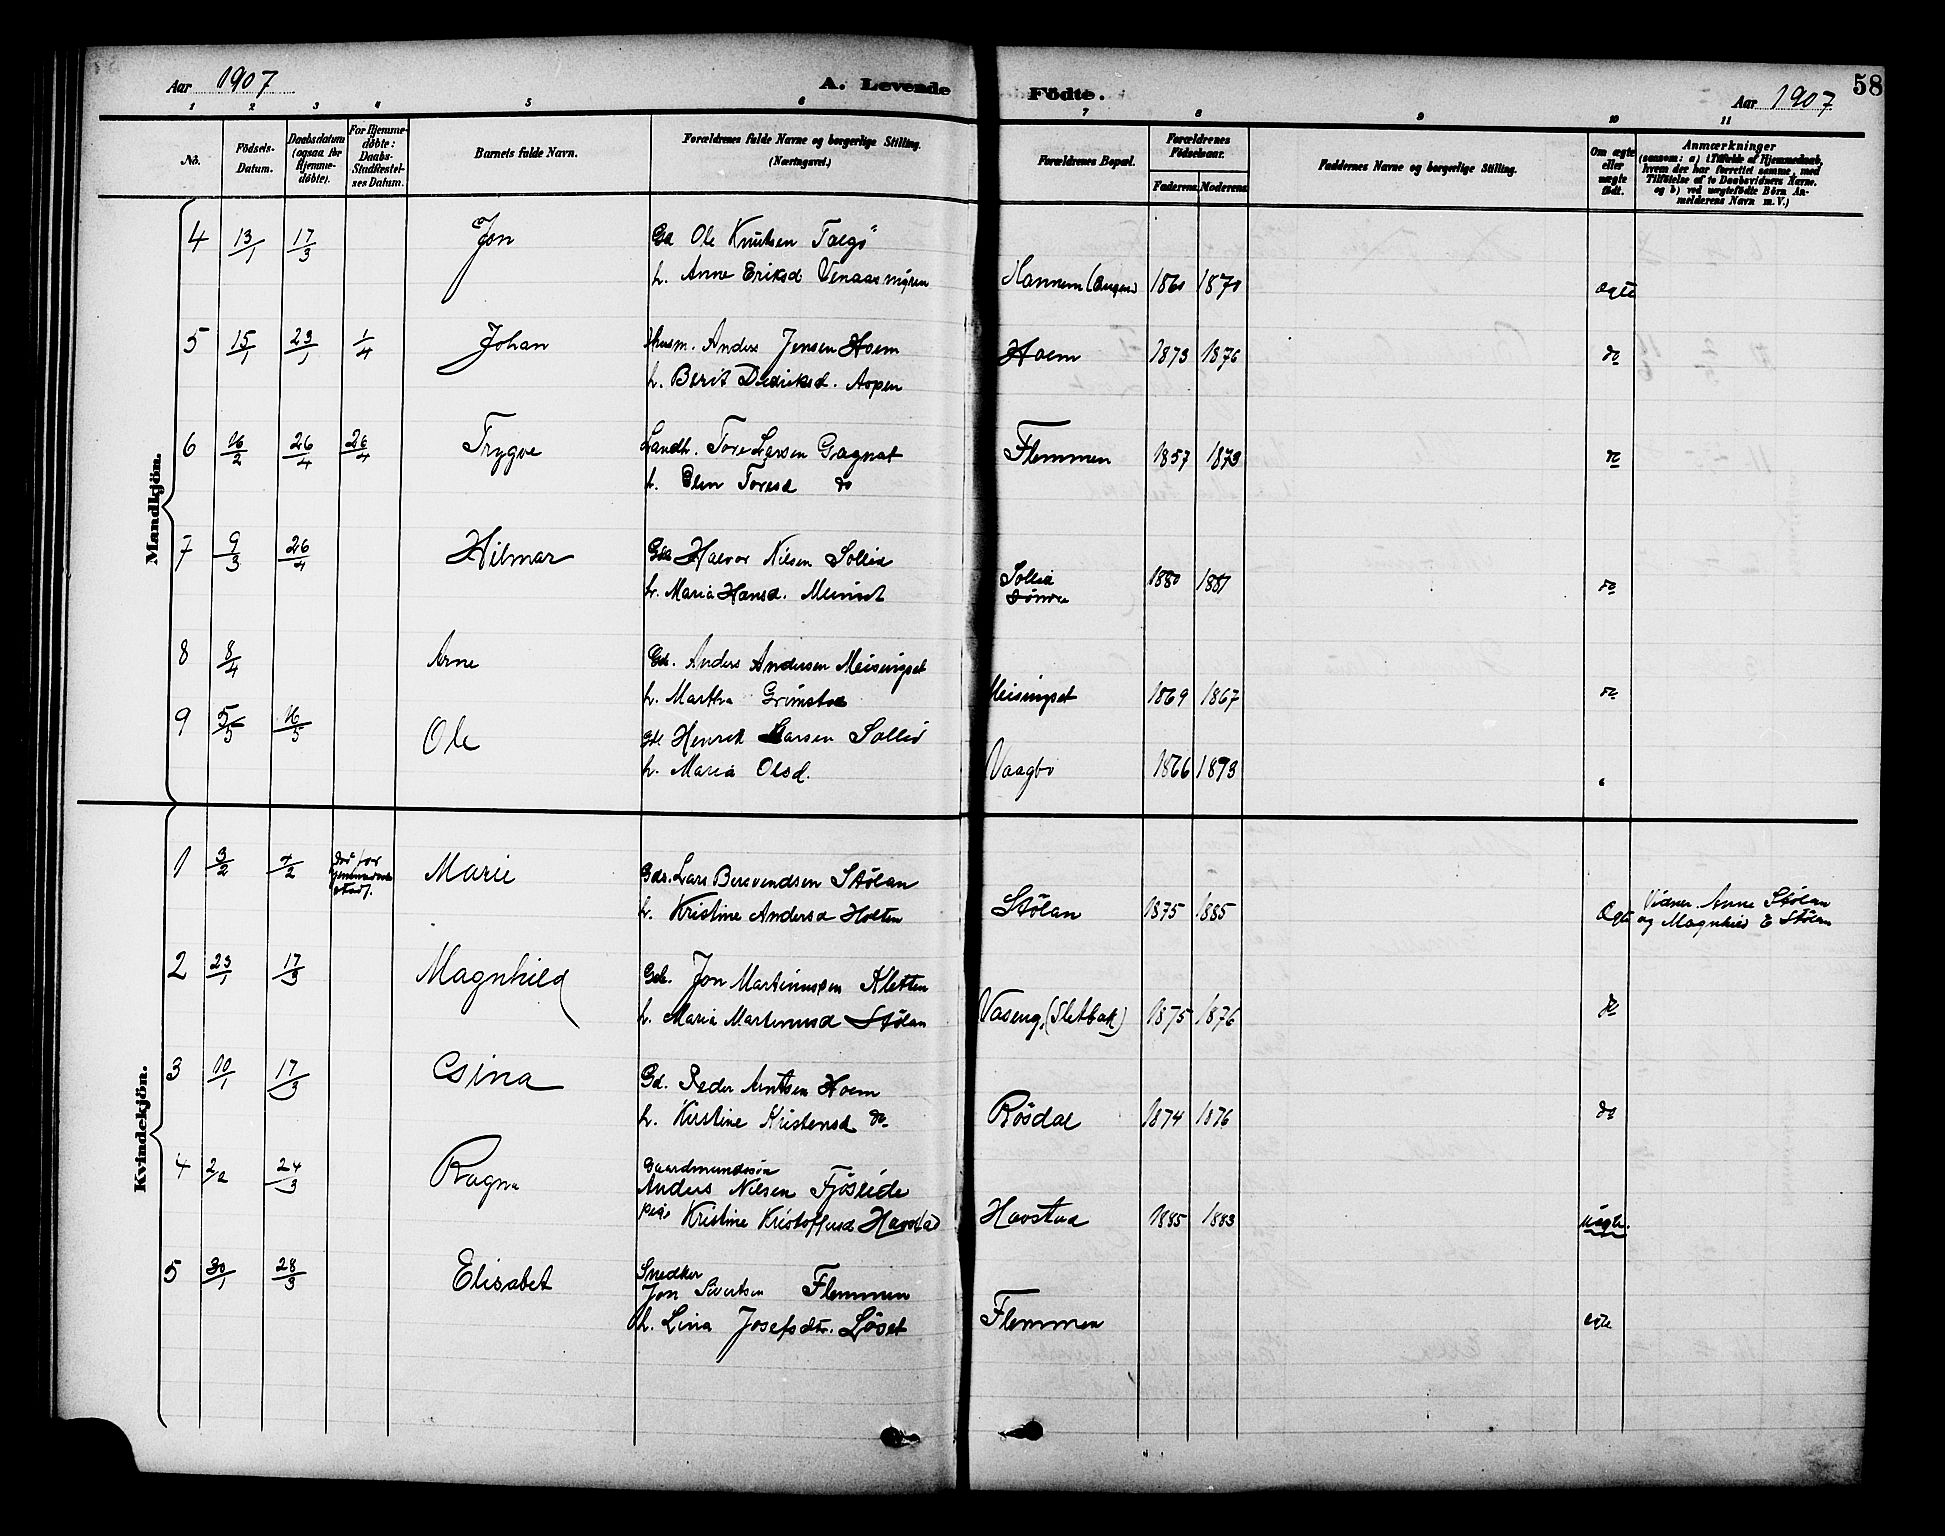 58
Aar 1907 A. Levende Födte. Aar 1907
1 2 3 4 5 6 7 8 9 10 11
No. Födsels-Datum. Daabsdatum (ogsaa for Hjemmedöbte). For Hjemmedöbte: Daabs-Stadfæstelses Datum. Barnets fulde Navn. Forældrenes fulde Navne og borgerlige Stilling. (Næringsvei.) Forældrenes Bopæl. Forældrenes Födselsaar. Faderens Moderens Faddernes Navne og borgerlige Stilling. Om ægte eller uægte födt. Anmærkninger (saasom: a) i Tilfælde af Hjemmedaab, hvem der har forrettet samme, med Tilföielse af to Daabsvidners Navne, og b) ved uægtefödte Börn Anmelderens Navn m. V.)
Mandkjön.
4 13/1 17/3 Jon Gd Ole Knutsen Talgö
h. Anne Eriksd Venaasmyren 1860 1870 ægte
5 15/1 23/1 1/4 Johan Husm. Anders Jensen Hoem
h. Berit Didriksd. Aspen Hoem 1873 1876 do
6 16/2 26/4 26/4 Trygve Landh. Tore Larsen Gagnat
h. Elen Toresd do Flemmen 1857 1873 do
7 9/3 26/4 Hilmar Gdb Halvor Nilsen Sollid
h. Maria Hansd. Sollia 1880 1881 do
8 8/4 Arne Gd. Anders Andersen Meisingset
h. Martha Grimstad Meisingset 1869 1867 do
9 5/5 16/5 Ole Gd Henrik Larsen Sollid
h. Maria Olsd. Vaagbö 1866 1873 "
Kvindekjön.
1 3/2 4/2 död för Marie Gdr. Lars Bersvendsen Stölan
h. Kristine Andersd Holten Stölan 1875 1885 Ægte Vidner. Anne Stölan
og Magnhild E Stölan
2 23/1 17/3 Magnhild Gdb. Jon Martinussen Kletten
h. Maria Martinusd Stölan Vaseng, (Sletbak) 1875 1876 do
3 10/1 17/3 Esina Gd. Peder Arntsen Hoem
h. Kirstine Kristensd do Rösdal 1874 1876 do
4 2/2 24/3 Ragna Gaardmandssön
Anders Nilsen Fjöseide
Pige Kristine Kristoffersd Havstad Havstad 1885 1883 uægte.
5 30/1 28/3 Elisabet Snedker
Jon Sivertsen Flemmen
h. Lina Josefsdtr. Löset Flemmen egte